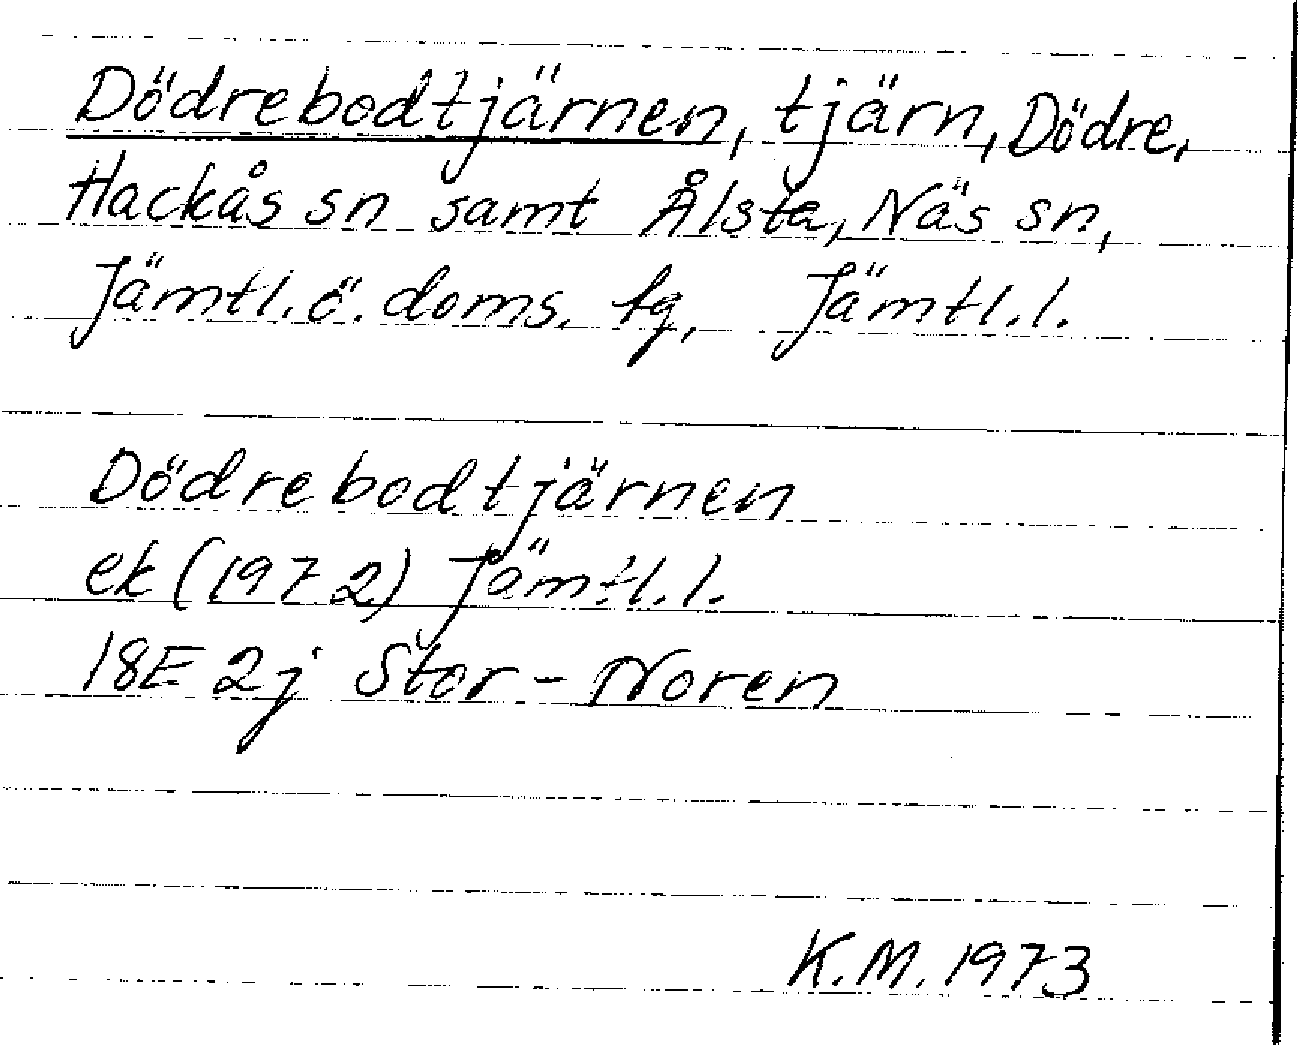 Dödrebodtjärnen, tjärn, Dödre,
Hackås sn samt Ålsta, Näs sn,
Jämtl. ö. doms. tg, Jämtl. l.
Dödrebodtjärnen
ek (1972) Jämtl. l.
18E 2j Stor-Noren
K.M. 1973